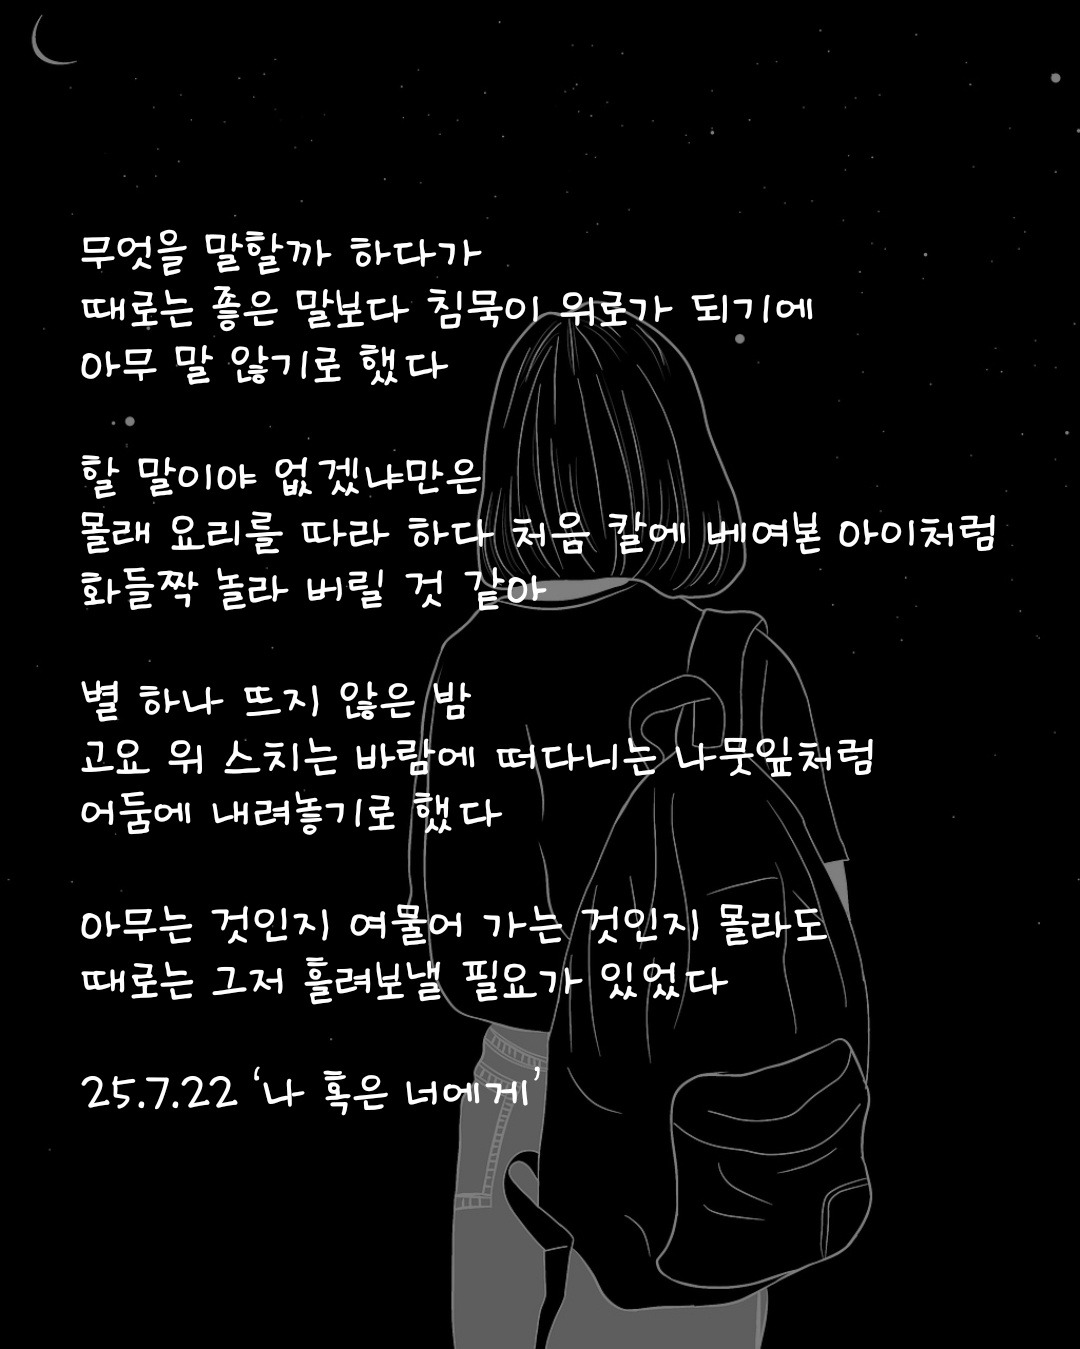 무엇을 말할까 하다가
때로는 좋은 말보다 침묵이 위로가 되기에
아무 말 않기로 했다
할 말이야 없겠냐만은
몰래 요리를 따라 하다 처음 칼에 베여본 아이처럼
화들짝 놀라 버릴 것 같아
별 하나 뜨지 않은 밤
고요 위 스치는 바람에 떠다니는 나뭇잎처럼
어둠에 내려놓기로 했다
아무는 것인지 여물어 가는 것인지 몰라도
때로는 그저 흘려보낼 필요가 있었다
25.7.22 ‘나 혹은 너에게’